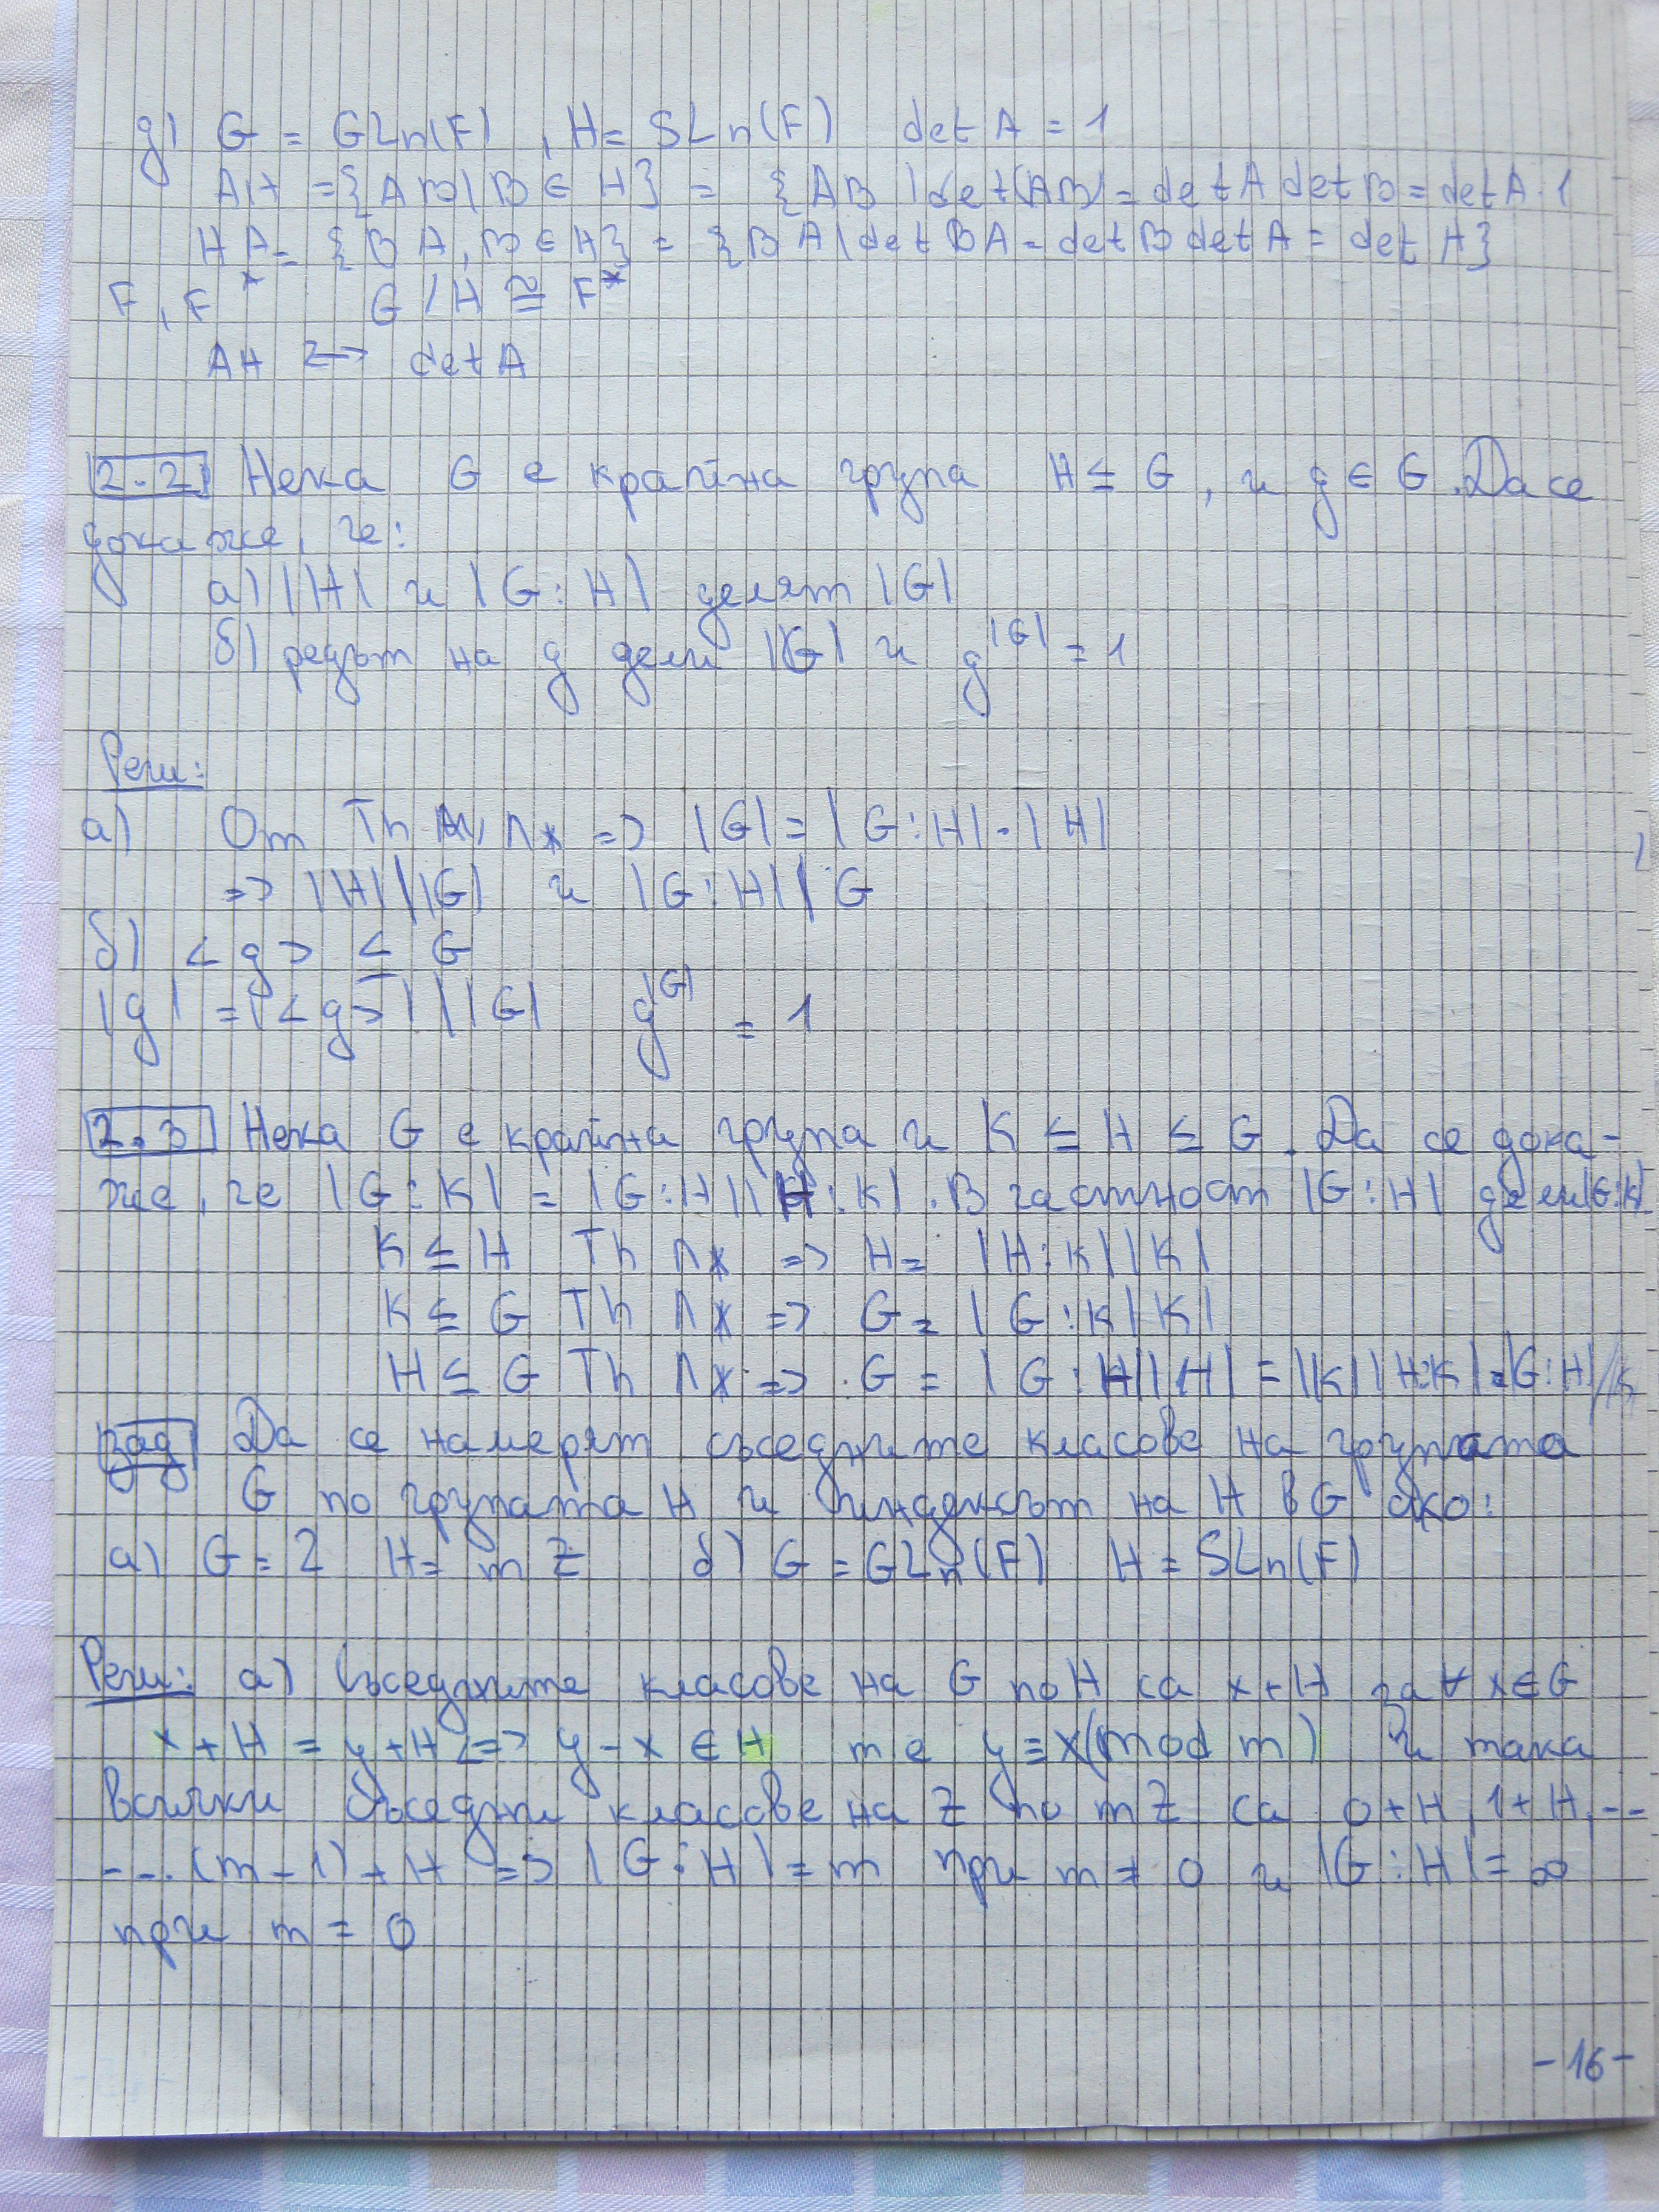 д) G = GLn(F), H = SLn(F) det A = 1
AH = {AB | B ∈ H} = {AB | det(AB) = det A det B = det A . 1
HA = {BA, B ∈ H} = {BA | det BA = det B det A = det A}
F, F* G/H ≅ F*
AH ↔ det A
2.2 Нека G е крайна група H ≤ G, и g ∈ G. Да се
докаже, че:
а) |H| и |G:H| делят |G|
б) редът на g дели |G| и g^|G| = 1
Реш:
а) От Th Лж => |G| = |G:H| . |H|
=> |H| | |G| и |G:H| | G
б) <g> ≤ G
|g| = |<g>| | |G| g^|G| = 1
2.3 Нека G е крайна група и K ≤ H ≤ G. Да се дока-
же, че |G:K| = |G:H||H:K|. В частност |G:H| дели |G:K|
K ≤ H Th Лж => H = |H:K||K|
K ≤ G Th Лж => G = |G:K|K|
H ≤ G Th Лж => G = |G:H||H| = |K||H:K| . |G:H|
зад Да се намерят съседните класове на групата
G по групата H и индексът на H в G ако:
а) G = Z H = mZ б) G = GLn(F) H = SLn(F)
Реш: а) Съседните класове на G по H са x+H за ∀ x∈G
x+H = y+H <=> y-x ∈ H те y ≡ x(mod m) и така
всички съседни класове на Z по mZ са 0+H, 1+H, --
--.. (m-1)+H => |G:H| = m при m ≠ 0 и |G:H| = ∞
при m = 0
-16-